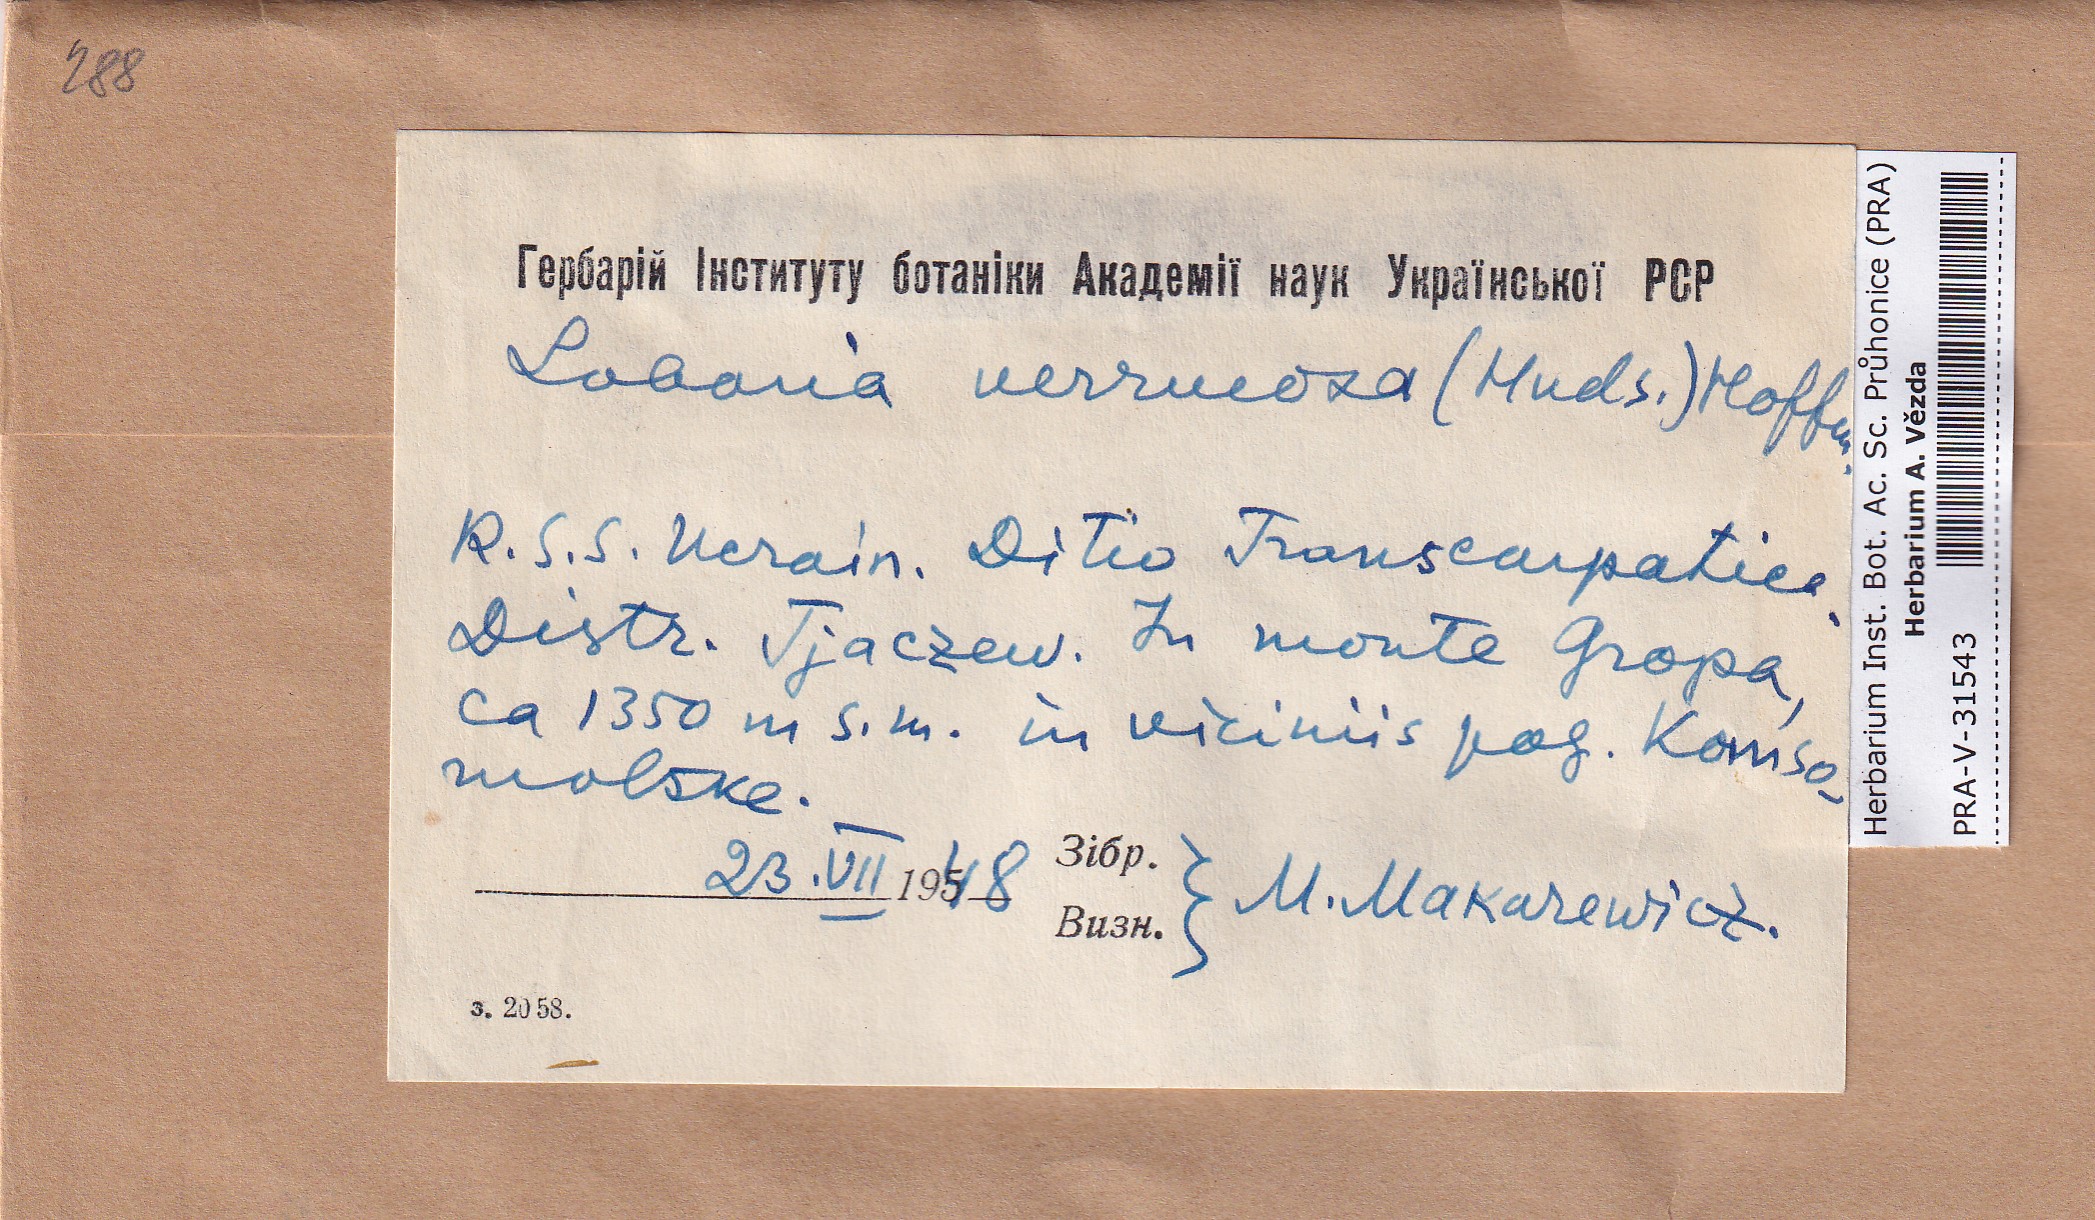 288
Гербарій Інституту ботаніки Академії наук Української РСР
Lobaria verrucosa (Huds.) Hoffm.
R.S.S. Ucrain. Ditio Transcarpatica,
Distr. Tjaczew. In monte Gropa,
ca 1350 m s.m. in viciniis pag. Komso-
molske.
23.VII 1948
Зібр.
Визн.
M. Makarewicz.
з. 2058.
Herbarium Inst. Bot. Ac. Sc. Průhonice (PRA)
Herbarium A. Vězda
PRA-V-31543